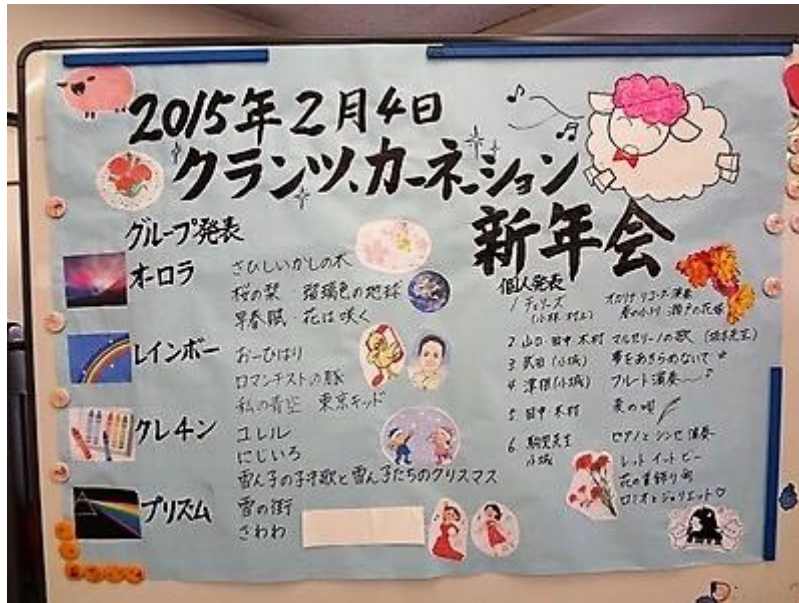 2015年2月4日
クランツ、カーネーション
新年会
グループ発表
オーロラ
さびしいかしの木
桜の栞 瑠璃色の地球
早春賦 花は咲く
レインボー
おーひばり
ロマンチストの豚
私の青空 東京キッド
クレヨン
ユレル
にじいろ
雪ん子の子守歌と雪ん子たちのクリスマス
プリズム
雪の街
さわわ
個人発表
1 チェリーズ オカリナ リコーダー演奏
(小林 村上) 春の小川 瀬戸の花嫁
2 山口 田中 木村 マルセリーノの歌
3 武田 (小城) 夢をあきらめないで
4 津根 (小城) フルート演奏
5 田中 木村
6 先生 ピアノとシンセ演奏
小城 レット イット ビー
花の首飾り
ロミオとジュリエット♡